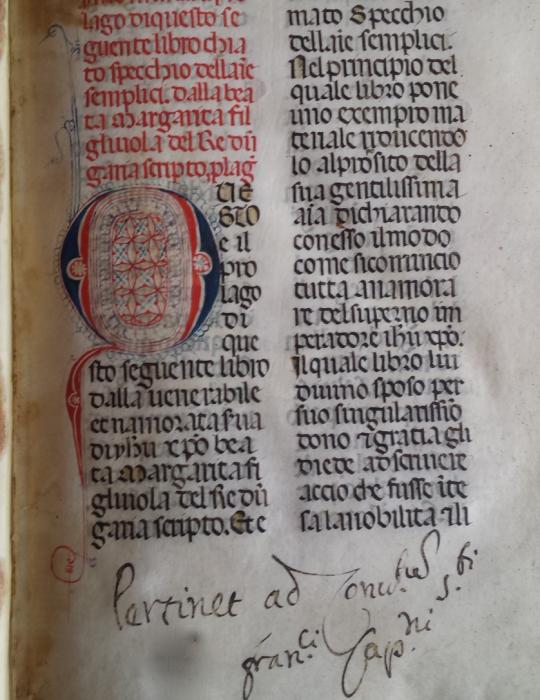 lago diquesto se
guente libro chia
to specchio dellaīe
semplici. dalla bea
ta Margarita fil
gliuola del Re dū
gana scripto, plag̃
QUE
STO
e il
pro
lago
di
que
sto seguente libro
dalla uenerabile
et namorata sua
diyhu xp̄o bea
ta Margarita fi
gliuola del Re dū
garia scripto. Et e
mato Specchio
dellaīe semplici.
Nel principio del
quale libro pone
uno exempro ma
teriale riducendo
lo alp̄osito della
sua gentilissima
aīa dichiarando
con esso il modo
come si comincio
tutta anamora
re del superno im
peradore ihū xp̄o.
Il quale libro lui
diuino sposo per
suo singularissīo
dono ⁊ gratia gli
diede ad scriuere
accio che fusse īte
sa la nobilita ⁊ li
Pertinet ad Conu.tus S.ti
fran.ci Cap.ni